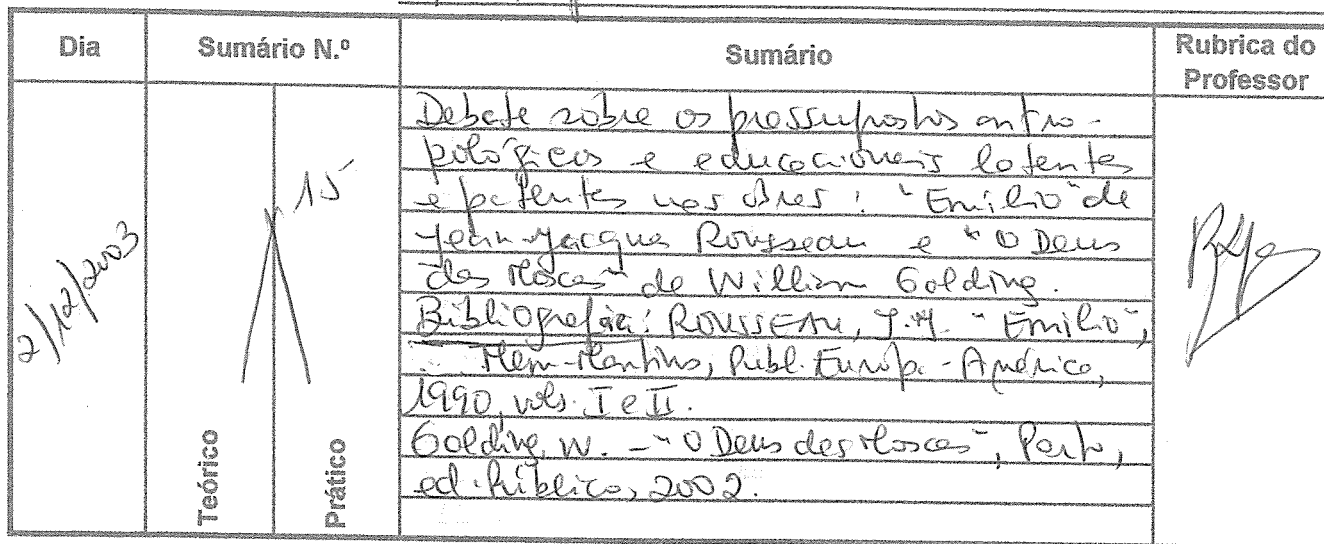 Dia
Sumário N.º
Sumário
Rubrica do
Professor
2/12/2003
15
Teórico
Prático
Debate sobre os pressupostos antro-
pológicos e educacionais latentes
e patentes nas obras: "Emílio" de
Jean-Jacques Rousseau e "O Deus
das Moscas" de William Golding.
Bibliografia: ROUSSEAU, J.J. "Emílio",
Mem-Martins, Publ. Europa-América,
1990, vols. I e II.
Golding, W. - "O Deus das Moscas", Porto,
ed. Público, 2002.